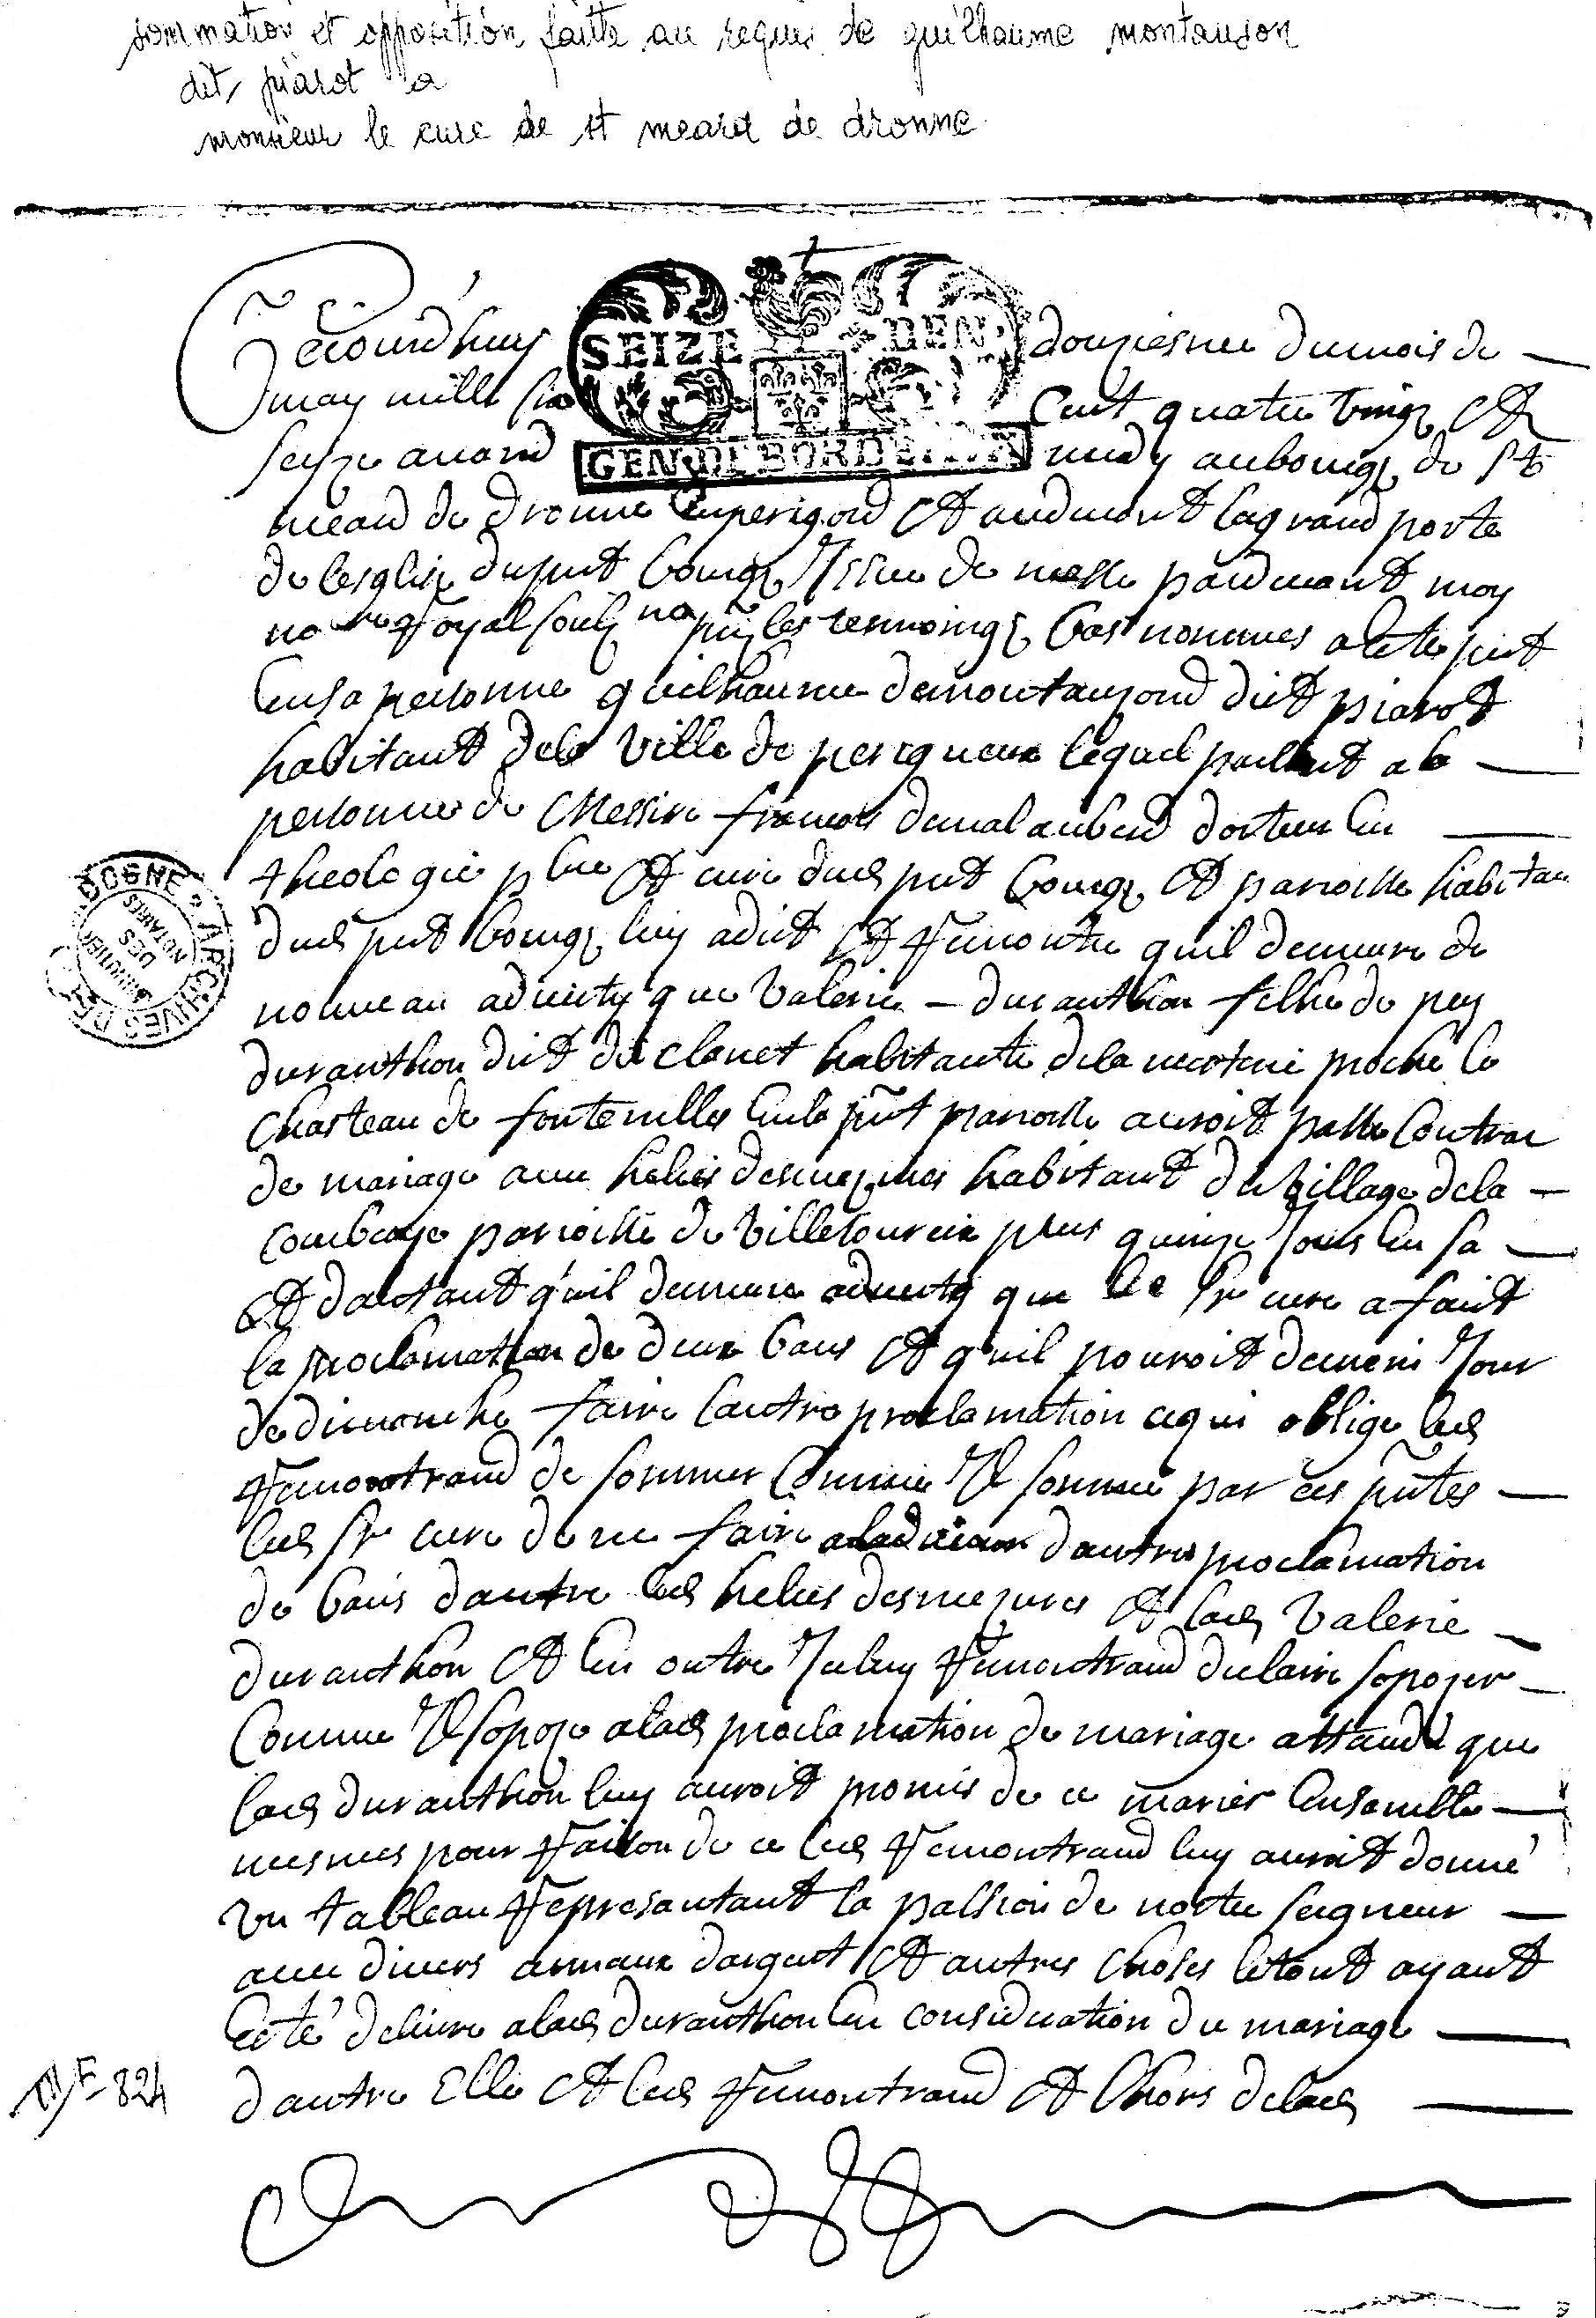 sommation et opposition faitte au requis de guilhaume montauzon
dit piarot a
monsieur le cure de st meard de dronne
Ce jourdhuy douziesme du mois de
SEIZE DEN
may mille six cent quatre vingz et
seize avand midy au bourgz de St
GEN DE BORDEAUX
meard de dronne en perigord et audevant la grand porte
de lesglize du pnt bourgz issue de messe pardevant moy
no re royal soubz ne pnt les tesmoingz bas nommes a este pnt
en sa personne guilhaume demontauzond dict piarot
habitant dela ville de perigueux lequel parlant a la
personne de Messire francois demalaubere docteur en
theologie pbre et cure dud pnt bourgz et paroisse habitan
dud pnt bourgz luy a dict et remontre quil demeure de
nouveau adverty que valerie duranthon filhe de pey
duranthon dict de clavet habitante dela proche le
chasteau de fontenilles en la pnt paroisse auroit passe contrac
de mariage avec helies desmezures habitant du village dela
combeaye paroisse de villetoureix puis quinze jours en sa
et dautant quil demeure adverty que le Sr cure a faict
la proclamation de deux bans et quil pouroit demain jour
de dimanche faire lautre proclamation ce qui oblige led
remontrand de sommer comme il somme par ces pntes
led Sr cure de ne faire dautre proclamation
de bans dautre led helies desmezures et lad valerie
duranthon et en outre luy remontrand declaire sopozer
comme il sopoze a lad proclamation de mariage attandu que
lad duranthon luy auroit promis de ce marier ensamble
mesmes pour raison de ce led remontrand luy auroit donné
un tableau represantant la passion de nostre seigneur
avec divers anneaux dargent et autres choses letout ayant
esté delivre a lad duranthon en consideration du mariage
dautre elle et led remontrand et lhors delad
DOGNE ARCHIVES DE
MINUTIER DES NOTAIRES
824